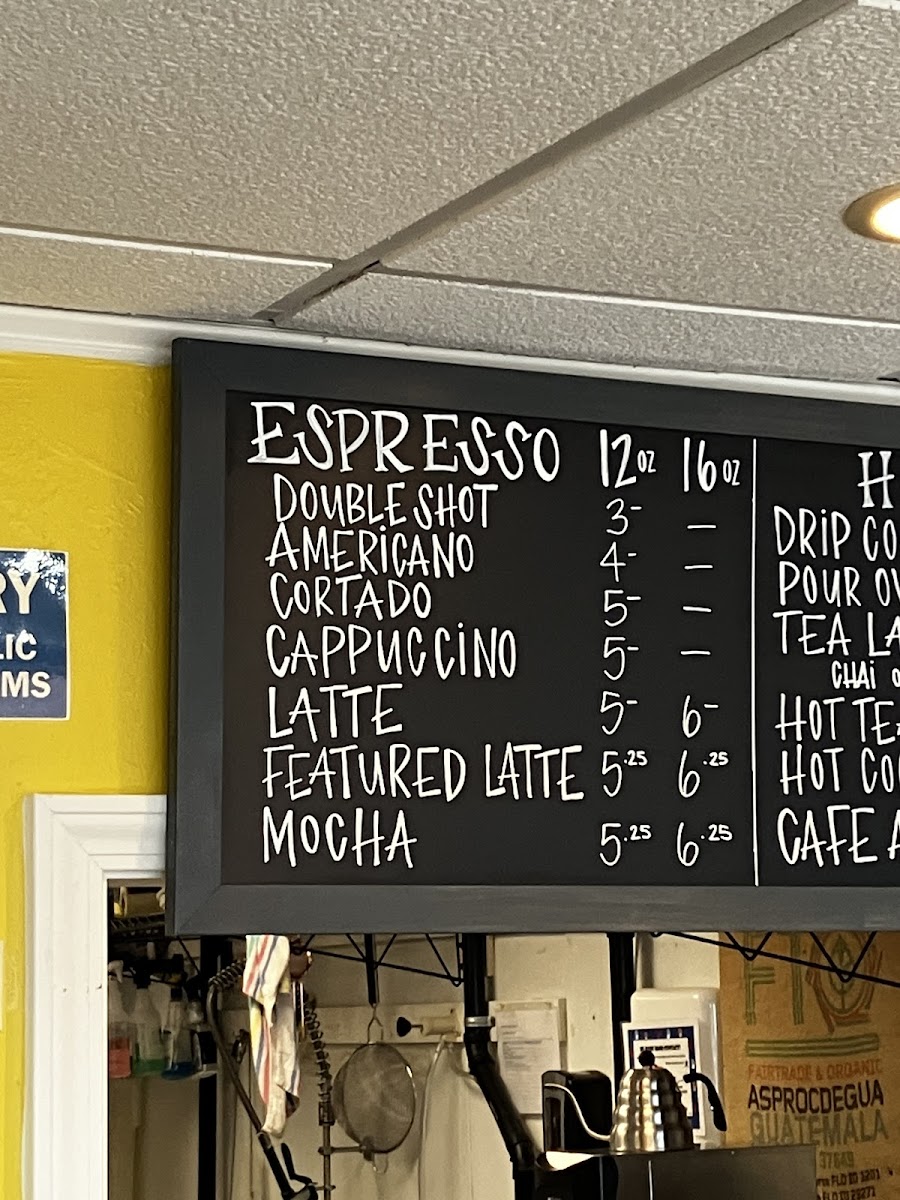 ESPRESSO 12oz 16oz
DOUBLE SHOT 3- —
AMERICANO 4- —
CORTADO 5- —
CAPPUCCINO 5- —
LATTE 5- 6-
FEATURED LATTE 5.25 6.25
MOCHA 5.25 6.25
H
DRIP CO
POUR OV
TEA LA
CHAI
HOT TE
HOT CO
CAFE A
RY
LIC
MS
FAIRTRADE & ORGANIC
ASPROCDEGUA
GUATEMALA
37649